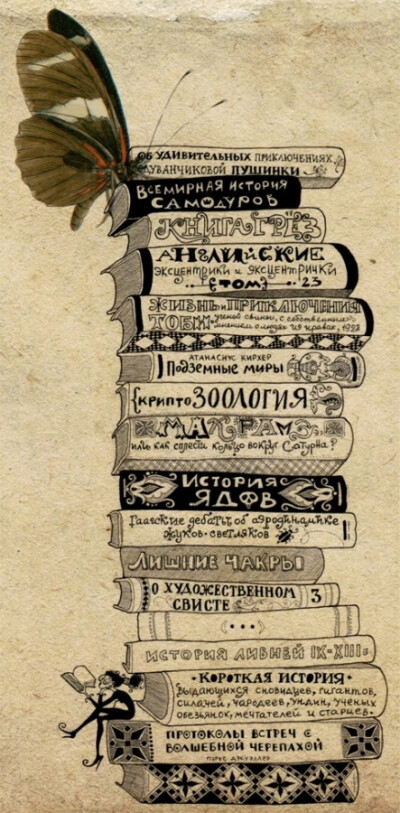 ОБ УДИВИТЕЛЬНЫХ ПРИКЛЮЧЕНИЯХ
ДУВАНЧИКОВОЙ ПУШИНКИ
ВСЕМИРНАЯ ИСТОРИЯ
САМОДУРОВ
КНИГА ГРЁЗ
АНГЛИЙСКИЕ
ЭКСЦЕНТРИКИ и ЭКСЦЕНТРИЧКИ
ТОМ 23
ЖИЗНЬ и ПРИКЛЮЧЕНИЯ
ТОБИ учёной свиньи, с собственным
мнением о людях и нравах,
АТАНАСИУС КИРХЕР
ПОДЗЕМНЫЕ МИРЫ
КРИПТОЗООЛОГИЯ
МАКРАМЭ
или как сплести кольцо вокруг Сатурна?
ИСТОРИЯ
ЯДОВ
Гаагские дебаты об аэродинамике
жуков-светляков
ЛИШНИЕ ЧАКРЫ
О ХУДОЖЕСТВЕННОМ
СВИСТЕ 3
(...)
ИСТОРИЯ ЛИВНЕЙ IX-XIII в.
•КОРОТКАЯ ИСТОРИЯ•
выдающихся сновидцев, гигантов,
силачей, чародеев, ундин, учёных
обезьянок, мечтателей и старцев.
ПРОТОКОЛЫ ВСТРЕЧ С
ВОЛШЕБНОЙ ЧЕРЕПАХОЙ